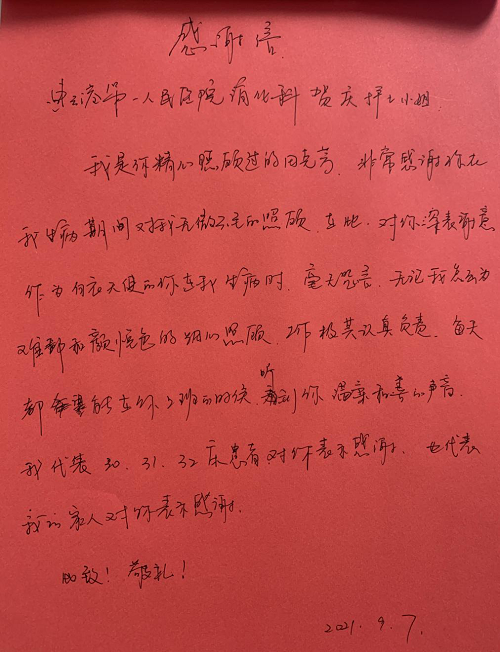 感谢信
连云港第一人民医院消化科 贺庆 护士小姐
我是你精心照顾过的田克亮、非常感谢你在
我生病期间对我无微不至的照顾、在此、对你深表谢意
作为白衣天使的你在我生病时、毫无怨言、无论我多么为
难都和颜悦色的细心照顾、工作极其认真负责、每天
都 能在你上班的时候、听到你温柔和善的声音。
我代表30、31、32床患者对你表示感谢、也代表
我的家人对你表示感谢。
此致！敬礼！
2021.9.7.